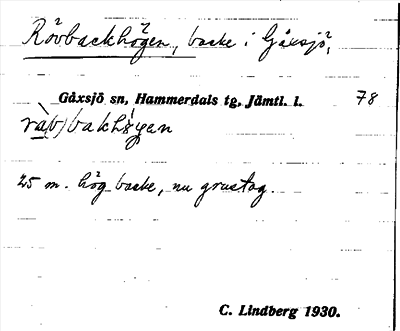 Rövbackhögen, backe i Gåxsjö,
Gåxsjö sn, Hammerdals tg, Jämtl. l. 78
25 m. hög backe, nu grustag.
C. Lindberg 1930.